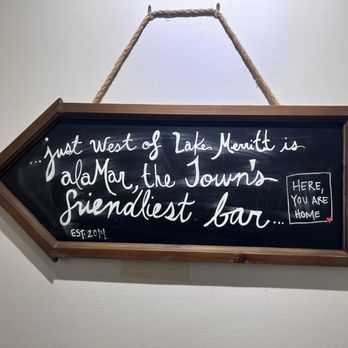 ...just West of Lake Merritt is
alaMar, the Town's
friendliest bar...
EST. 2014
HERE,
YOU ARE
HOME